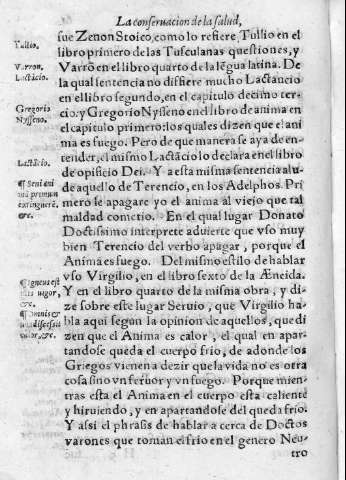 La conseruacion de la salud,
fue Zenon Stoico, como lo refiere Tullio en el
libro primero de las Tusculanas questiones, y
Varrõ en el libro quarto de la lẽgua latina. De
la qual sentencia no difiere mucho Lactancio
en el libro segundo, en el capitulo decimo ter-
cio: y Gregorio Nysseno en el libro de anima en
el capitulo primero: los quales dizen que el ani
ma es fuego. Pero de que manera se aya de en-
tender, el mismo Lactãcio lo declara en el libro
de opificio Dei. Y a esta misma sentencia alu-
de aquello de Terencio, en los Adelphos. Pri
mero se apagare yo el anima al viejo que tal
maldad cometio. En el qual lugar Donato
Doctissimo interprete aduierte que vso muy
bien Terencio del verbo apagar, porque el
Anima es fuego. Del mismo estilo de hablar
vso Virgilio, en el libro sexto de la Æneida.
Y en el libro quarto de la misma obra, y di-
ze sobre este lugar Seruio, que Virgilio ha-
bla aqui segun la opinion de aquellos, que di
zen que el Anima es calor, el qual en apar-
tandose queda el cuerpo frio, de adonde los
Griegos vienen a dezir que la vida no es otra
cosa sino vn feruor y vn fuego. Porque mien-
tras esta el Anima en el cuerpo esta caliente
y hiruiendo, y en apartandose del queda frio.
Y assi el phrasis de hablar a cerca de Doctos
varones que toman el frio en el genero Neu-
tro
Tullio.
Varron.
Lactãcio.
Gregorio
Nysseno.
Lactãcio.
¶ Seni ani
mã primum
extinguerẽ,
&c.
¶ Igneus est
ollis uigor,
&c.
¶ Omnis et
una dilapsus
calor, &c.